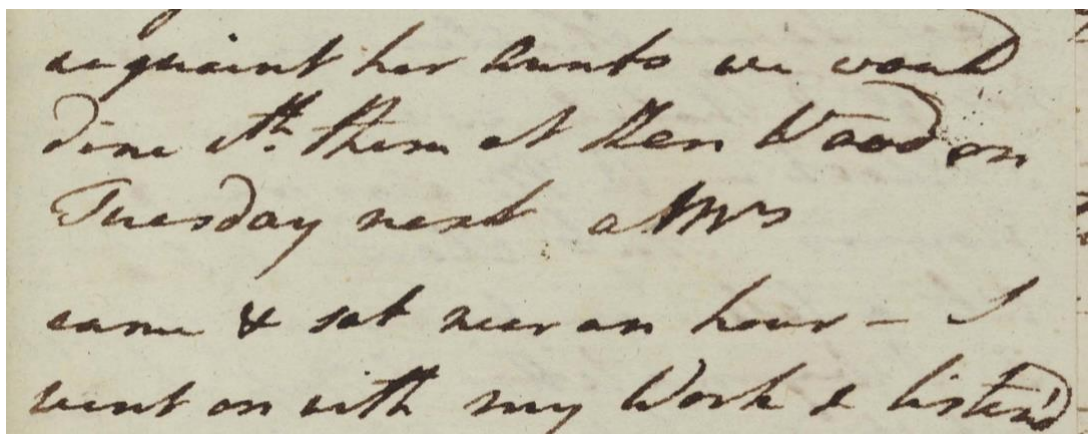 acquaint her Aunts we would
dine wth. them at Ken Wood on
Tuesday next
came & sat near an hour – I
went on with my Work & listen'd